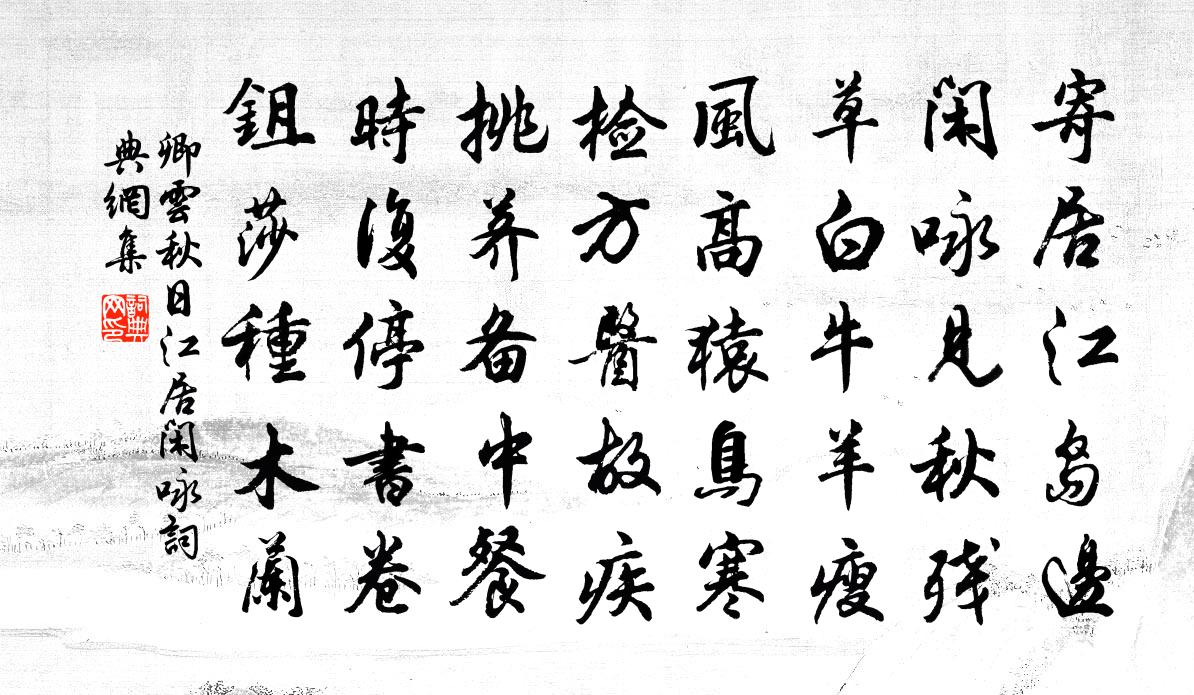 寄居江島邊
閑咏見秋殘
草白牛羊瘦
風高猿鳥寒
檢方醫故疾
挑荠备中餐
時復停書卷
鉏莎種木蘭
卿雲秋日江居閑咏詞
典網集
詞典
网印